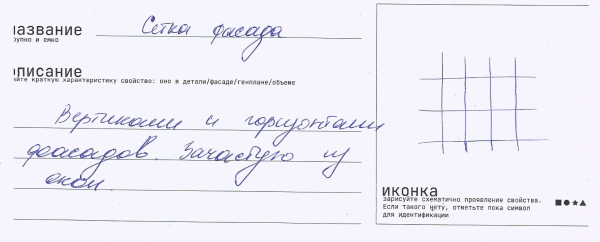 название Сетка фасада
крупно и емко
описание
дайте краткую характеристику свойство: оно в детали/фасаде/генплане/объеме
Вертикали и горизонтали
фасадов. Зачастую из
окон.
иконка
зарисуйте схематично проявление свойства.
Если такого нету, отметьте пока символ
для идентификации